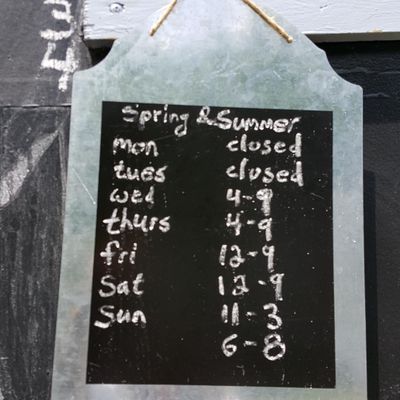 Spring & Summer
mon closed
tues closed
wed 4-9
thurs 4-9
fri 12-9
Sat 12-9
Sun 11-3
6-8